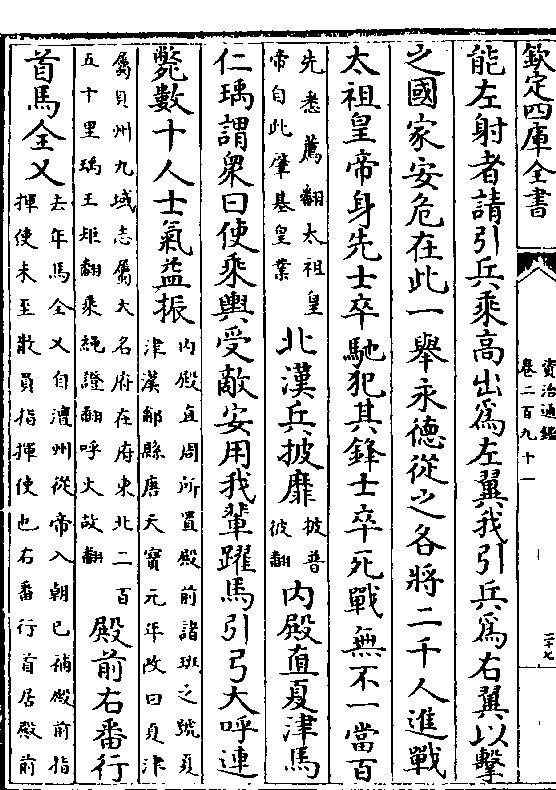 欽定四庫全書
資治通鑑
卷二百九十一
二十七
能左射者請引兵乘高出為左翼我引兵為右翼以擊
之國家安危在此一舉永德從之各將二千人進戰
太祖皇帝身先士卒馳犯其鋒士卒死戰無不一當百
先悉薦翻太祖皇
帝自此肇基皇業
北漢兵披靡
披普
彼翻
内殿直夏津馬
仁瑀謂衆曰使乘輿受敵安用我輩躍馬引弓大呼連
斃數十人士氣益振
内殿直周所置殿前諸班之號夏
津漢鄃縣唐天寶元年改曰夏津
屬貝州九域志屬大名府在府東北二百
五十里瑀王矩翻乘䋲證翻呼火故翻
殿前右番行
首馬全乂
去年馬全乂自澶州從帝入朝已補殿前指
揮使未至散員指揮使也右番行首居殿前